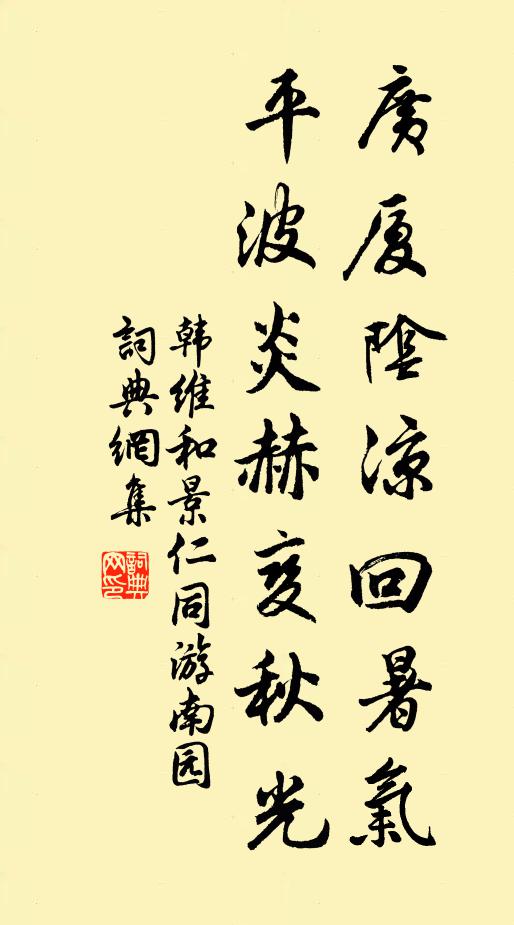 廣厦陰涼回暑氣
平波炎赫变秋光
韩维和景仁同游南园
詞典網集
詞典网印